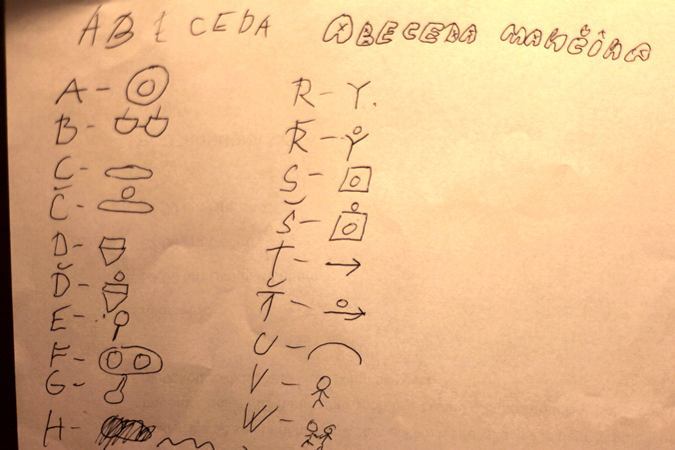 ABECEDA ABECEDA
A -
B -
C -
Č -
D -
Ď -
E -
F -
G -
H -
R - Y.
Ř -
S -
Š -
T -
Ť -
U -
V -
W -